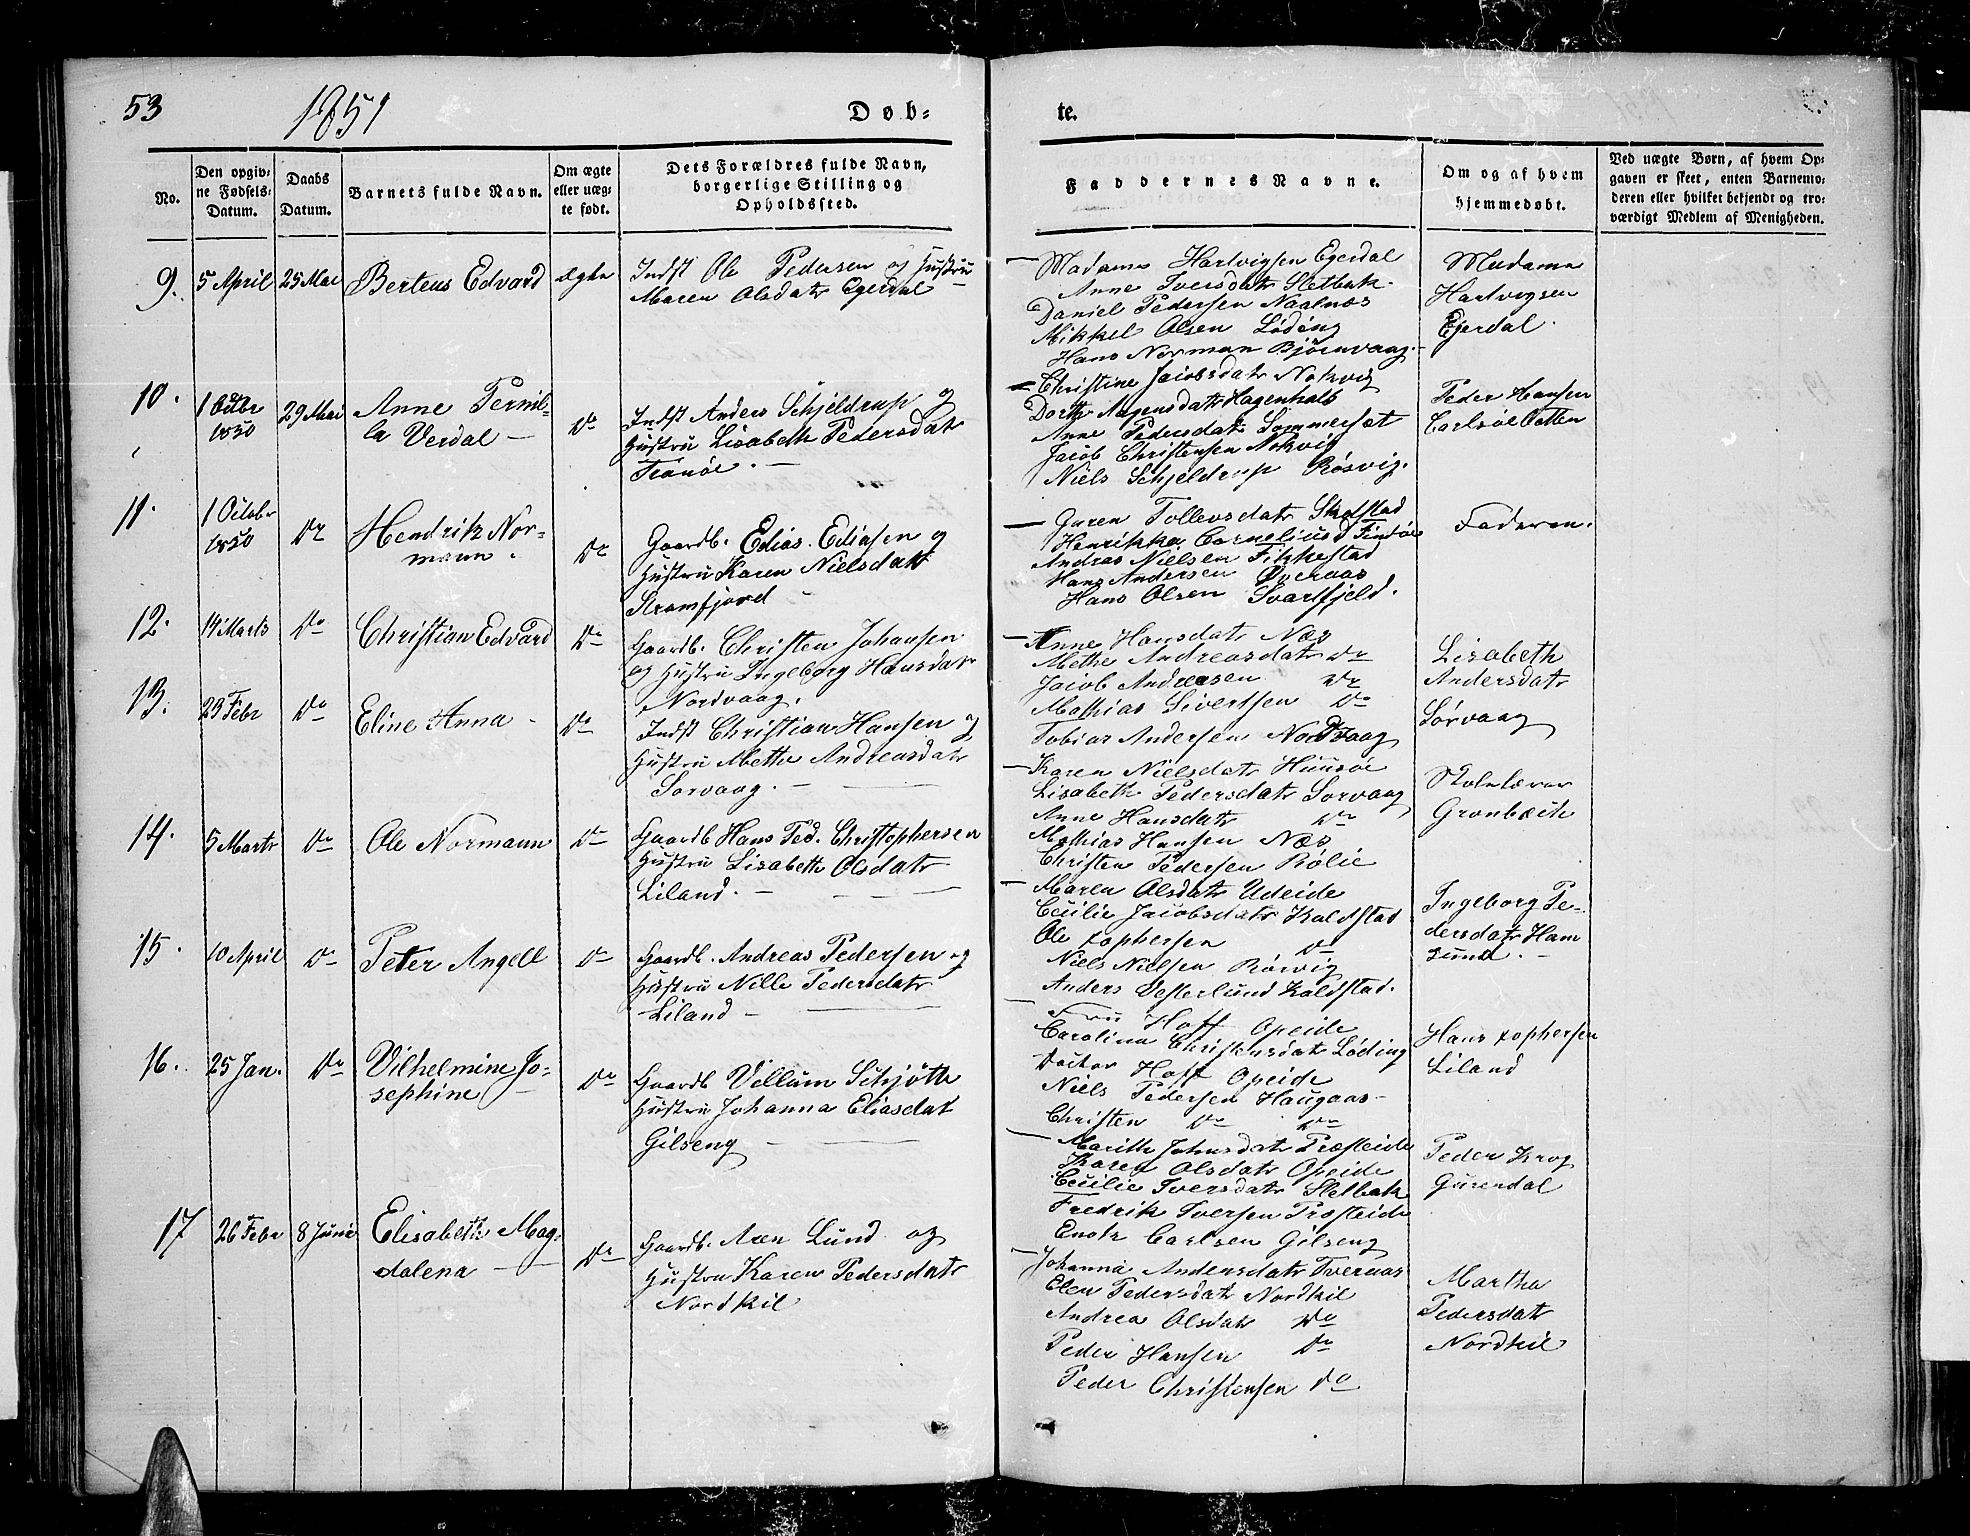 53
1851
Døb-
te.
No.
Den opgiv-
ne Fødsels-
Datum.
Daabs
Datum.
Barnets fulde Navn.
Om ægte
eller uæg-
te født.
Dets Forældres fulde Navn,
borgerlige Stilling og
Opholdssted.
Faddernes Navne.
Om og af hvem
hjemmedøbt.
Ved uægte Børn, af hvem Op-
gaven er skeet, enten Barnemo-
deren eller hvilket bekjendt og tro-
værdigt Medlem af Menigheden.
9. 5 April 25 Mai Berteus Edvard ægte
Indst Ole Pedersen og Hustru
Maren Olsdatr Egerdal
Madame Hartvigsen Egerdal
Anne Iversdatr Sletbak
Daniel Pedersen Naalnæs
Mikkel Olsen Løding
Hans Norman Bjørnvaag
Madame
Hartvigsen
Ejerdal.
10. 1 Octbr 1850 29 Mai
Anne Pernil-
la Verdal Do
Indst Anders Schjeldrup og
Hustru Lisabeth Pedersdatr
Tranøe.
Christine Jacobsdatr Nokvig
Dorth Aagensdatr Hagenhals
Anne Pedersdatr Sommerset
Jacob Christensen Nokvig
Niels Schjeldrup Røsvig.
Peder Hansen
Carlsøe Botten
11. 1 Octobr 1850 Do
Hendrik Nor-
mann. Do
Gaardb. Edias Ediasen og
Hustru Karen Nielsdatr
Stromfjord
Guren Tollevsdatr Skofstad
Henrikka Corneliusd Findøe
Andreas Nielsen Fikkestad
Hans Andersen Øveraas
Hans Olsen Svartfjeld.
Faderen.
12. 14 Marts Do Christian Edvard Do
Gaardb. Christen Johansen
og Hustru Ingeborg Hansdatr
Nordvaag.
Anne Hansdatr Næs
Methe Andreasdatr Do
Jacob Andersen Do
Mathias Sivertsen Do
Tobias Andersen Nordvaag
Lisabeth
Andersdatr
Sørvaag
13. 23 Febr Do Eline Anna Do
Indst Christian Hansen og
Hustru Methe Andreasdatr
Sorvaag.
Karen Nielsdatr Huusøe
Lisabeth Pedersdatr Sorvaag
Anne Hansdatr Do
Mathias Hansen Næs
Christen Pedersen Rølie
Skolelærer
Grønbæck
14. 5 Marts Do Ole Normann Do
Gaardb Hans Ped. Christophersen
Hustru Lisabeth Olsdatr
Liland.
Maren Olsdatr Udeide
Cecilie Jacobsdatr Kaldstad
Ole xophersen Do
Niels Nielsen Rørvig
Anders Vesterlund Kaldstad.
Ingeborg Pe-
dersdatr Ham
sund.
15. 10 April Do Peter Angell Do
Gaardb. Andreas Pedersen og
Hustru Nille Pedersdatr
Liland
Fru Hoff Opeide
Carolina Christensdatr Løding
Doctor Hoff Opeide
Niels Pedersen Haugaas
Christen Do Do
Hans xophersen
Liland
16. 25 Jan. Do
Vilhelmine Jo-
sephine Do
Gaardb Vellum Schjøtte
Hustru Johanna Eliasdat
Gilseng
Marith Johnsdatr Præsteide
Karen Olsdatr Opeide
Cecilie Iversdatr Sletbak
Fredrik Iversen Præsteide
Enok Carlsen Gilseng
Peder Krog
Gurendal
17 26 Febr 8 Juni
Elisabeth Mag-
dalena Do
Gaardb. Aren Lund og
Hustru Karen Pedersdatr
Nordkil
Johanna Andersdatr Tvernæs
Elen Pedersdatr Nordkil
Andrea Olsdatr Do
Peder Hansen Do
Peder Christensen Do
Martha
Pedersdatr
Nordkil